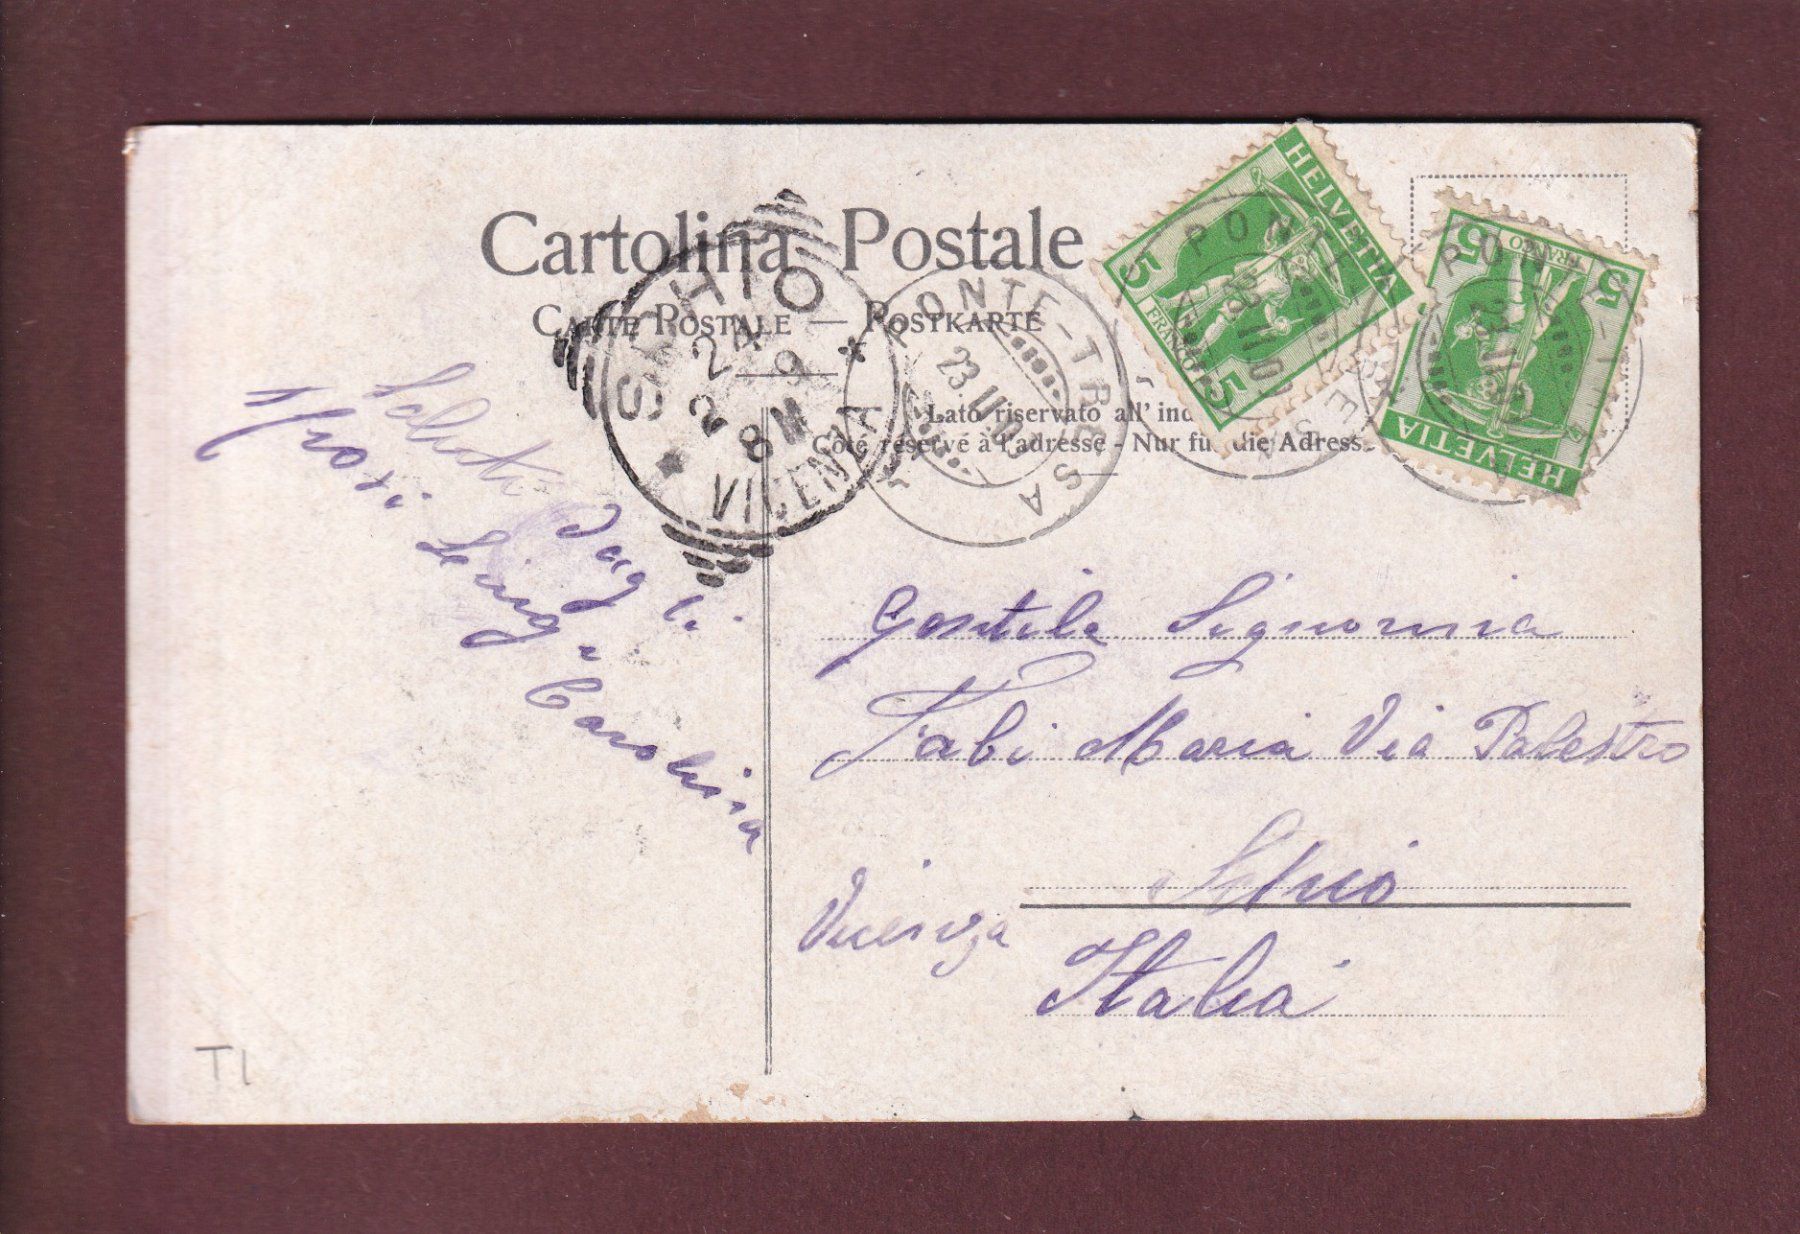 Cartolina Postale
Carte Postale — Postkarte
Lato riservato all' ind
Côté réservé à l'adresse - Nur fü die Adress
HELVETIA
5 5
FRANCO
HELVETIA
5 5
FRANCO
PONTE-TRESA
23
PONTE
PONTE-T
23
SCHIO
VICENZA
24 2 9
8M
Saluti dagli
Carolina
Gentile Signorina
Fabi Maria Via Palestro
Schio
Vicenza
Italia
T1